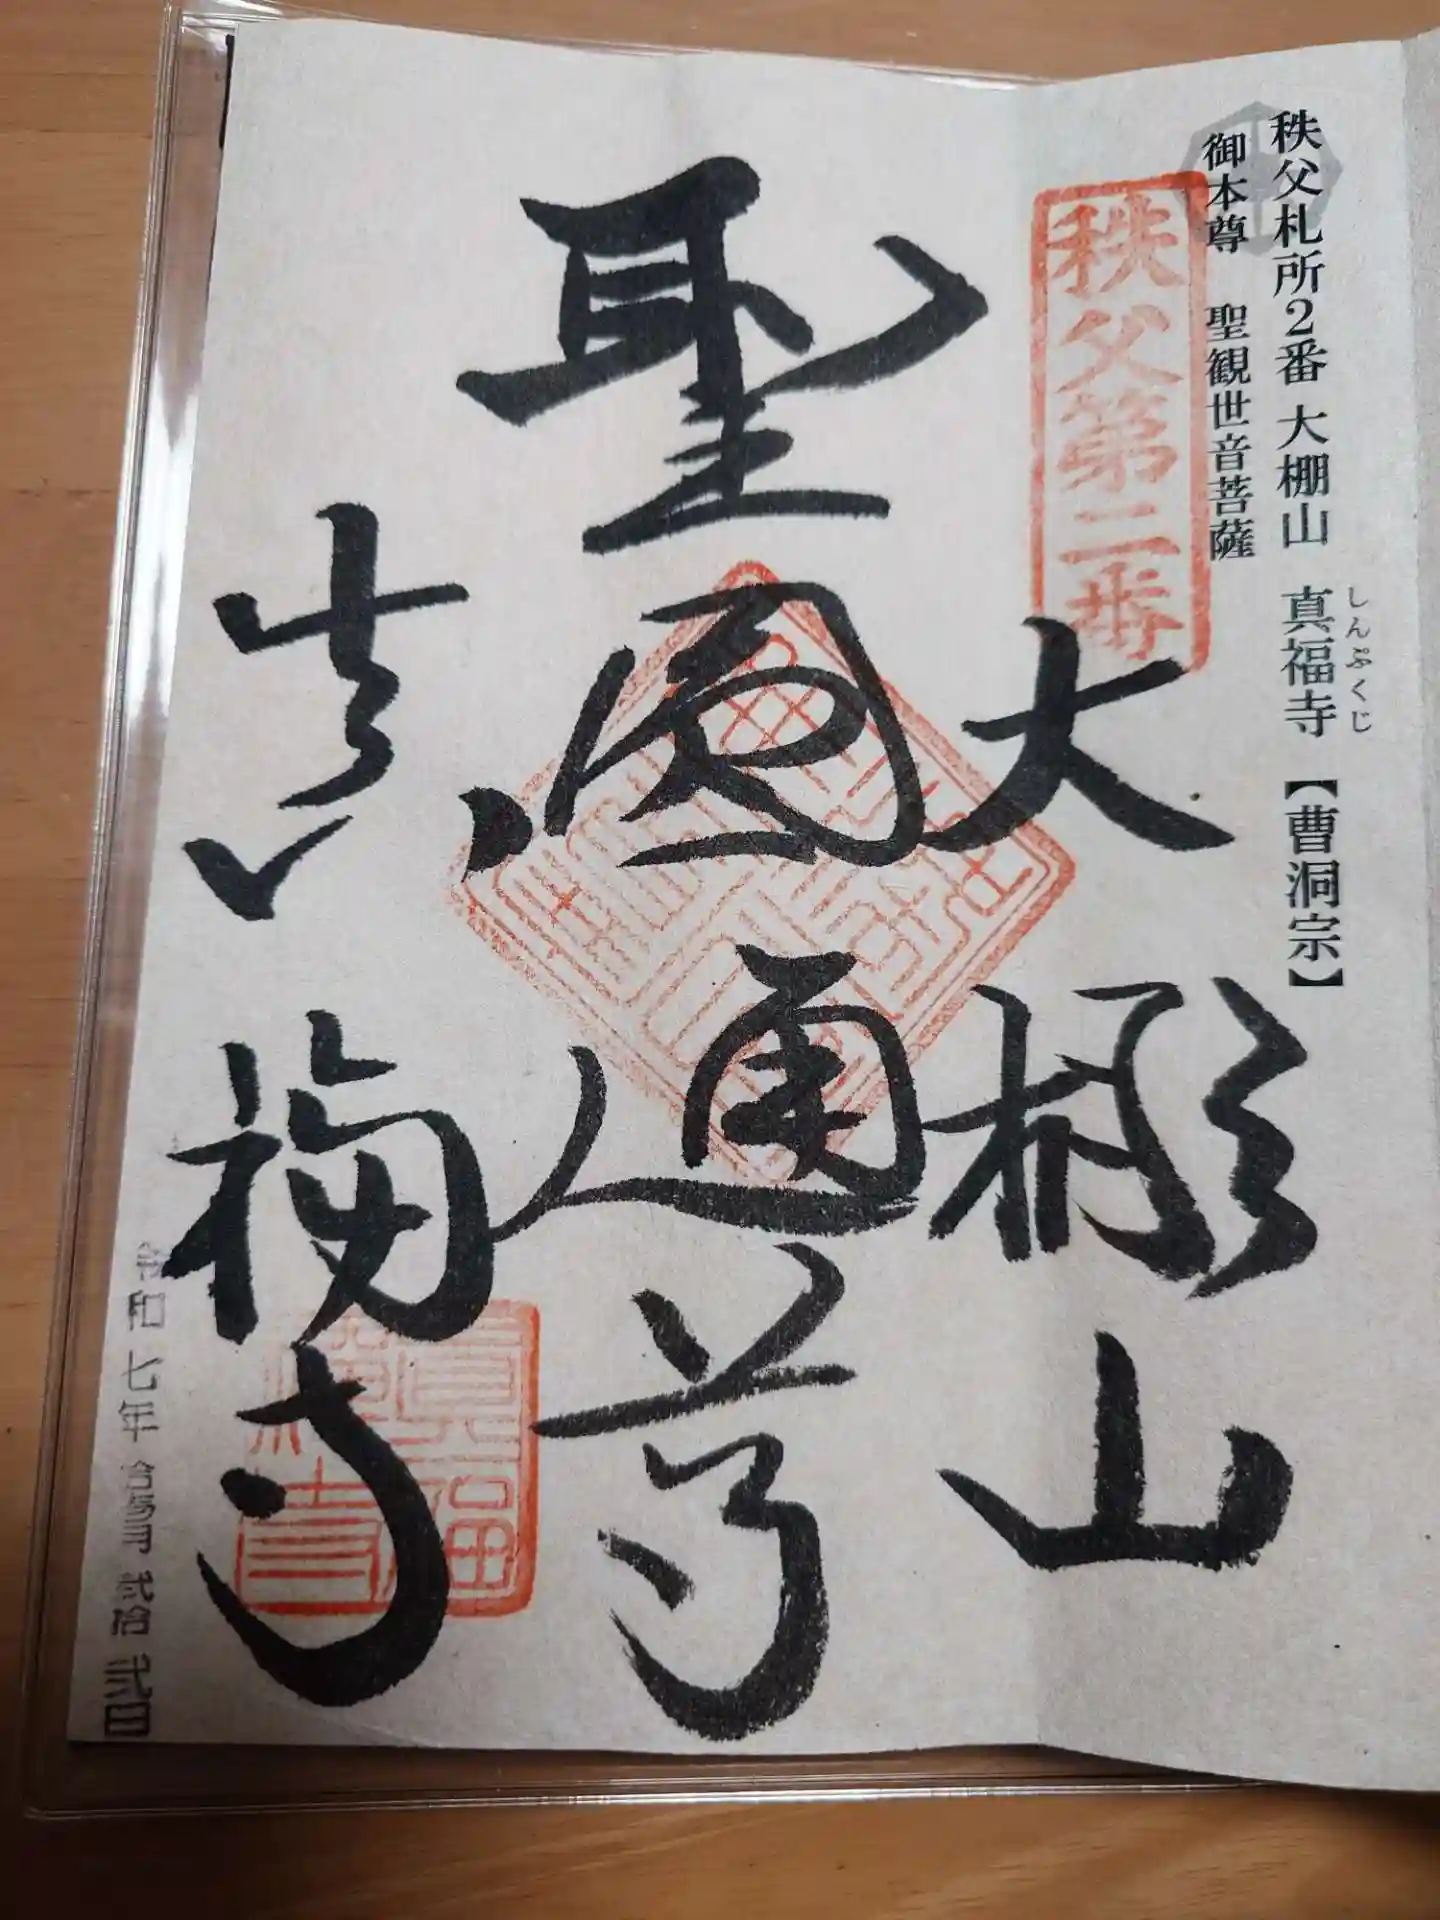 秩父札所2番 大棚山 真福寺【曹洞宗】
しんぷくじ
御本尊 聖観世音菩薩
秩父第二番
大棚山
聖圓通尊
真福寺
眞福
禅寺
令和七年拾壱月弐拾弐日